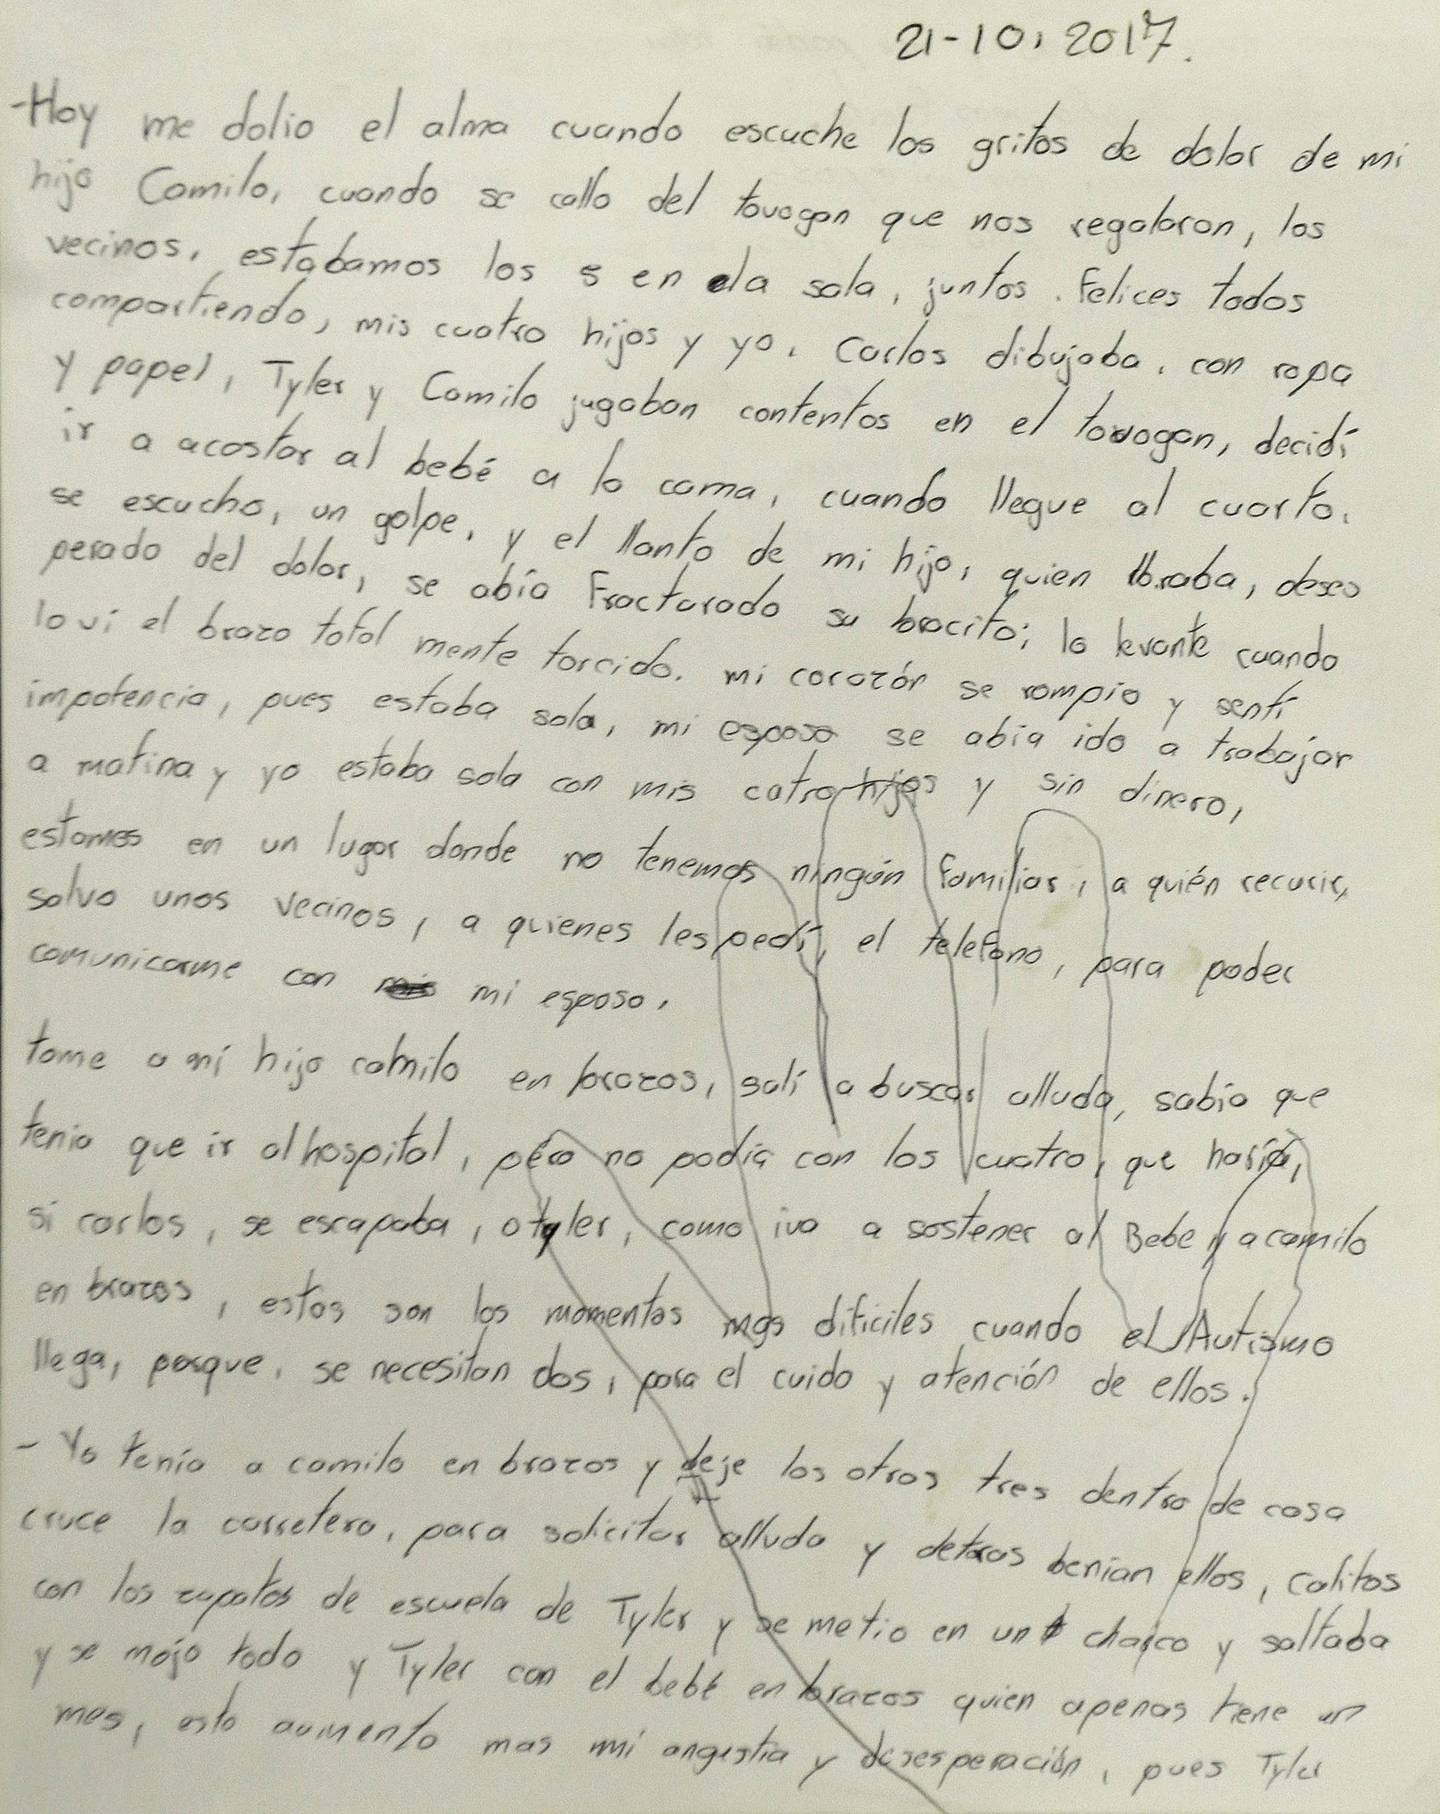 21-10, 2017.
-Hoy me dolio el alma cuando escuche los gritos de dolor de mi
hijo Camilo, cuando se callo del tovogan que nos regalaron, los
vecinos, estabamos los 5 en la sala, juntos. Felices todos
compartiendo, mis cuatro hijos y yo. Carlos dibujaba, con ropa
y papel, Tyler y Camilo jugaban contentos en el tovogan, decidí
ir a acostar al bebé a la cama, cuando llegue al cuarto.
se escucho, un golpe, y el llanto de mi hijo, quien lloraba, deses
perado del dolor, se abia Fracturado su bracito; lo levante cuando
lo vi el brazo total mente torcido. mi corazón se rompio y senti
impotencia, pues estaba sola, mi esposo se abia ido a trabajar
a matina y yo estaba sola con mis catro hijos y sin dinero,
estamos en un lugar donde no tenemos ningún familiar, a quién recurir,
salvo unos vecinos, a quienes les pedí, el telefono, para poder
comunicarme con mi esposo.
tome a mi hijo camilo en brazos, salí a buscar alluda, sabia que
tenia que ir al hospital, pero no podia con los cuatro, que haría,
si carlos, se escapaba, o tyler, como iva a sostener al Bebe y a camilo
en brazos, estos son los momentos mas dificiles cuando el Autismo
llega, porque, se necesitan dos, para el cuido y atención de ellos.
- Yo tenia a camilo en brazos y deje los otros tres dentro de casa
cruce la carretera, para solicitar alluda y detras benian ellos, calitos
con los zapatos de escuela de Tyler y se metio en un charco y saltaba
y se mojo todo y Tyler con el bebé en brazos quien apenas tiene un
mes, esto aumento mas mi angustia y desesperación, pues Tyler